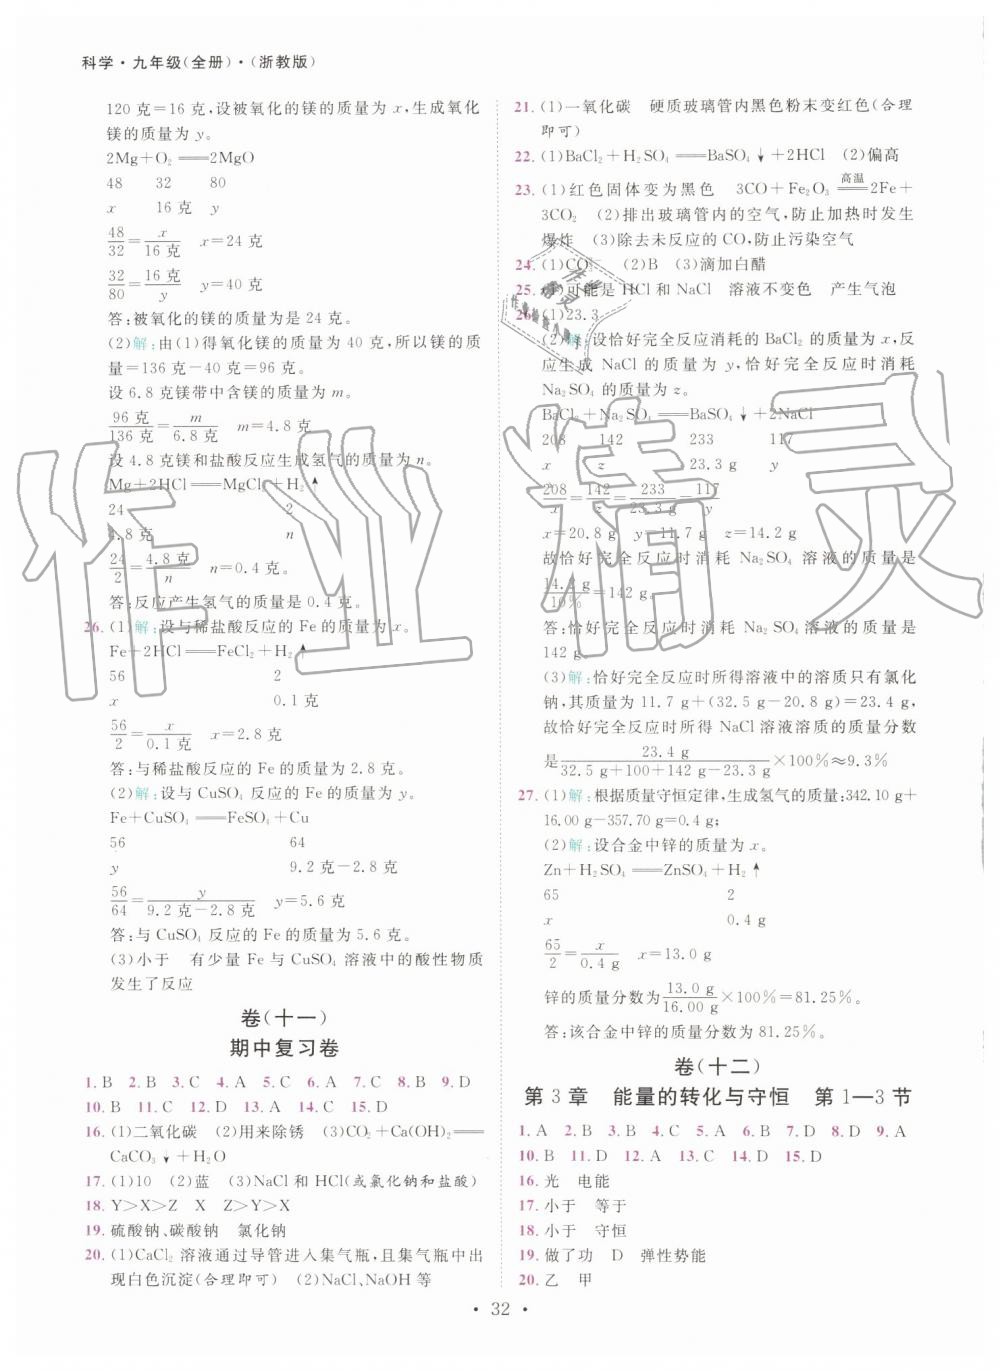 科学·九年级(全册)·(浙教版)
120 克=16 克,设被氧化的镁的质量为 x,生成氧化
镁的质量为 y。
2Mg+O₂══2MgO
48 32 80
x 16 克 y
48/32=x/16 克 x=24 克
32/80=16 克/y y=40 克
答:被氧化的镁的质量为是 24 克。
(2)解:由(1)得氧化镁的质量为 40 克,所以镁的质
量=136 克-40 克=96 克。
设 6.8 克镁带中含镁的质量为 m。
96 克/136 克=m/6.8 克 m=4.8 克
设 4.8 克镁和盐酸反应生成氢气的质量为 n。
Mg+2HCl══MgCl₂+H₂↑
24 2
4.8 克 n
24/2=4.8 克/n n=0.4 克。
答:反应产生氢气的质量是 0.4 克。
26. (1)解:设与稀盐酸反应的 Fe 的质量为 x。
Fe+2HCl══FeCl₂+H₂↑
56 2
x 0.1 克
56/2=x/0.1 克 x=2.8 克
答:与稀盐酸反应的 Fe 的质量为 2.8 克。
(2)解:设与 CuSO₄ 反应的 Fe 的质量为 y。
Fe+CuSO₄══FeSO₄+Cu
56 64
y 9.2 克-2.8 克
56/64=y/9.2 克-2.8 克 y=5.6 克
答:与 CuSO₄ 反应的 Fe 的质量为 5.6 克。
(3)小于 有少量 Fe 与 CuSO₄ 溶液中的酸性物质
发生了反应
卷(十一)
期中复习卷
1. B 2. B 3. C 4. A 5. C 6. D 7. C 8. B 9. D
10. B 11. C 12. D 13. A 14. C 15. D
16. (1)二氧化碳 (2)用来除锈 (3)CO₂+Ca(OH)₂══
CaCO₃↓+H₂O
17. (1)10 (2)蓝 (3)NaCl 和 HCl(或氯化钠和盐酸)
18. Y>X>Z X Z>Y>X
19. 硫酸钠、碳酸钠 氯化钠
20. (1)CaCl₂ 溶液通过导管进入集气瓶,且集气瓶中出
现白色沉淀(合理即可) (2)NaCl、NaOH 等
21. (1)一氧化碳 硬质玻璃管内黑色粉末变红色(合理
即可)
22. (1)BaCl₂+H₂SO₄══BaSO₄↓+2HCl (2)偏高
23. (1)红色固体变为黑色 3CO+Fe₂O₃ 高温══ 2Fe+
3CO₂ (2)排出玻璃管内的空气,防止加热时发生
爆炸 (3)除去未反应的 CO,防止污染空气
24. (1)CO₂ (2)B (3)滴加白醋
25. (1)可能是 HCl 和 NaCl 溶液不变色 产生气泡
26. (1)23.3
(2)解:设恰好完全反应消耗的 BaCl₂ 的质量为 x,反
应生成 NaCl 的质量为 y,恰好完全反应时消耗
Na₂SO₄ 的质量为 z。
BaCl₂+Na₂SO₄══BaSO₄↓+2NaCl
208 142 233 117
x z 23.3 g y
208/x=142/z=233/23.3 g=117/y
x=20.8 g y=11.7 g z=14.2 g
故恰好完全反应时消耗 Na₂SO₄ 溶液的质量是
14.2 g/10%=142 g。
答:恰好完全反应时消耗 Na₂SO₄ 溶液的质量是
142 g。
(3)解:恰好完全反应时所得溶液中的溶质只有氯化
钠,其质量为 11.7 g+(32.5 g-20.8 g)=23.4 g,
故恰好完全反应时所得 NaCl 溶液溶质的质量分数
是 23.4 g/32.5 g+100+142 g-23.3 g×100%≈9.3%
27. (1)解:根据质量守恒定律,生成氢气的质量:342.10 g+
16.00 g-357.70 g=0.4 g;
(2)解:设合金中锌的质量为 x。
Zn+H₂SO₄══ZnSO₄+H₂↑
65 2
x 0.4 g
65/2=x/0.4 g x=13.0 g
锌的质量分数为 13.0 g/16.00 g×100%=81.25%。
答:该合金中锌的质量分数为 81.25%。
卷(十二)
第 3 章 能量的转化与守恒 第 1—3 节
1. A 2. B 3. B 4. C 5. A 6. B 7. D 8. D 9. A
10. B 11. D 12. C 13. C 14. D 15. D
16. 光 电能
17. 小于 等于
18. 小于 守恒
19. 做了功 D 弹性势能
20. 乙 甲
· 32 ·
作业精灵